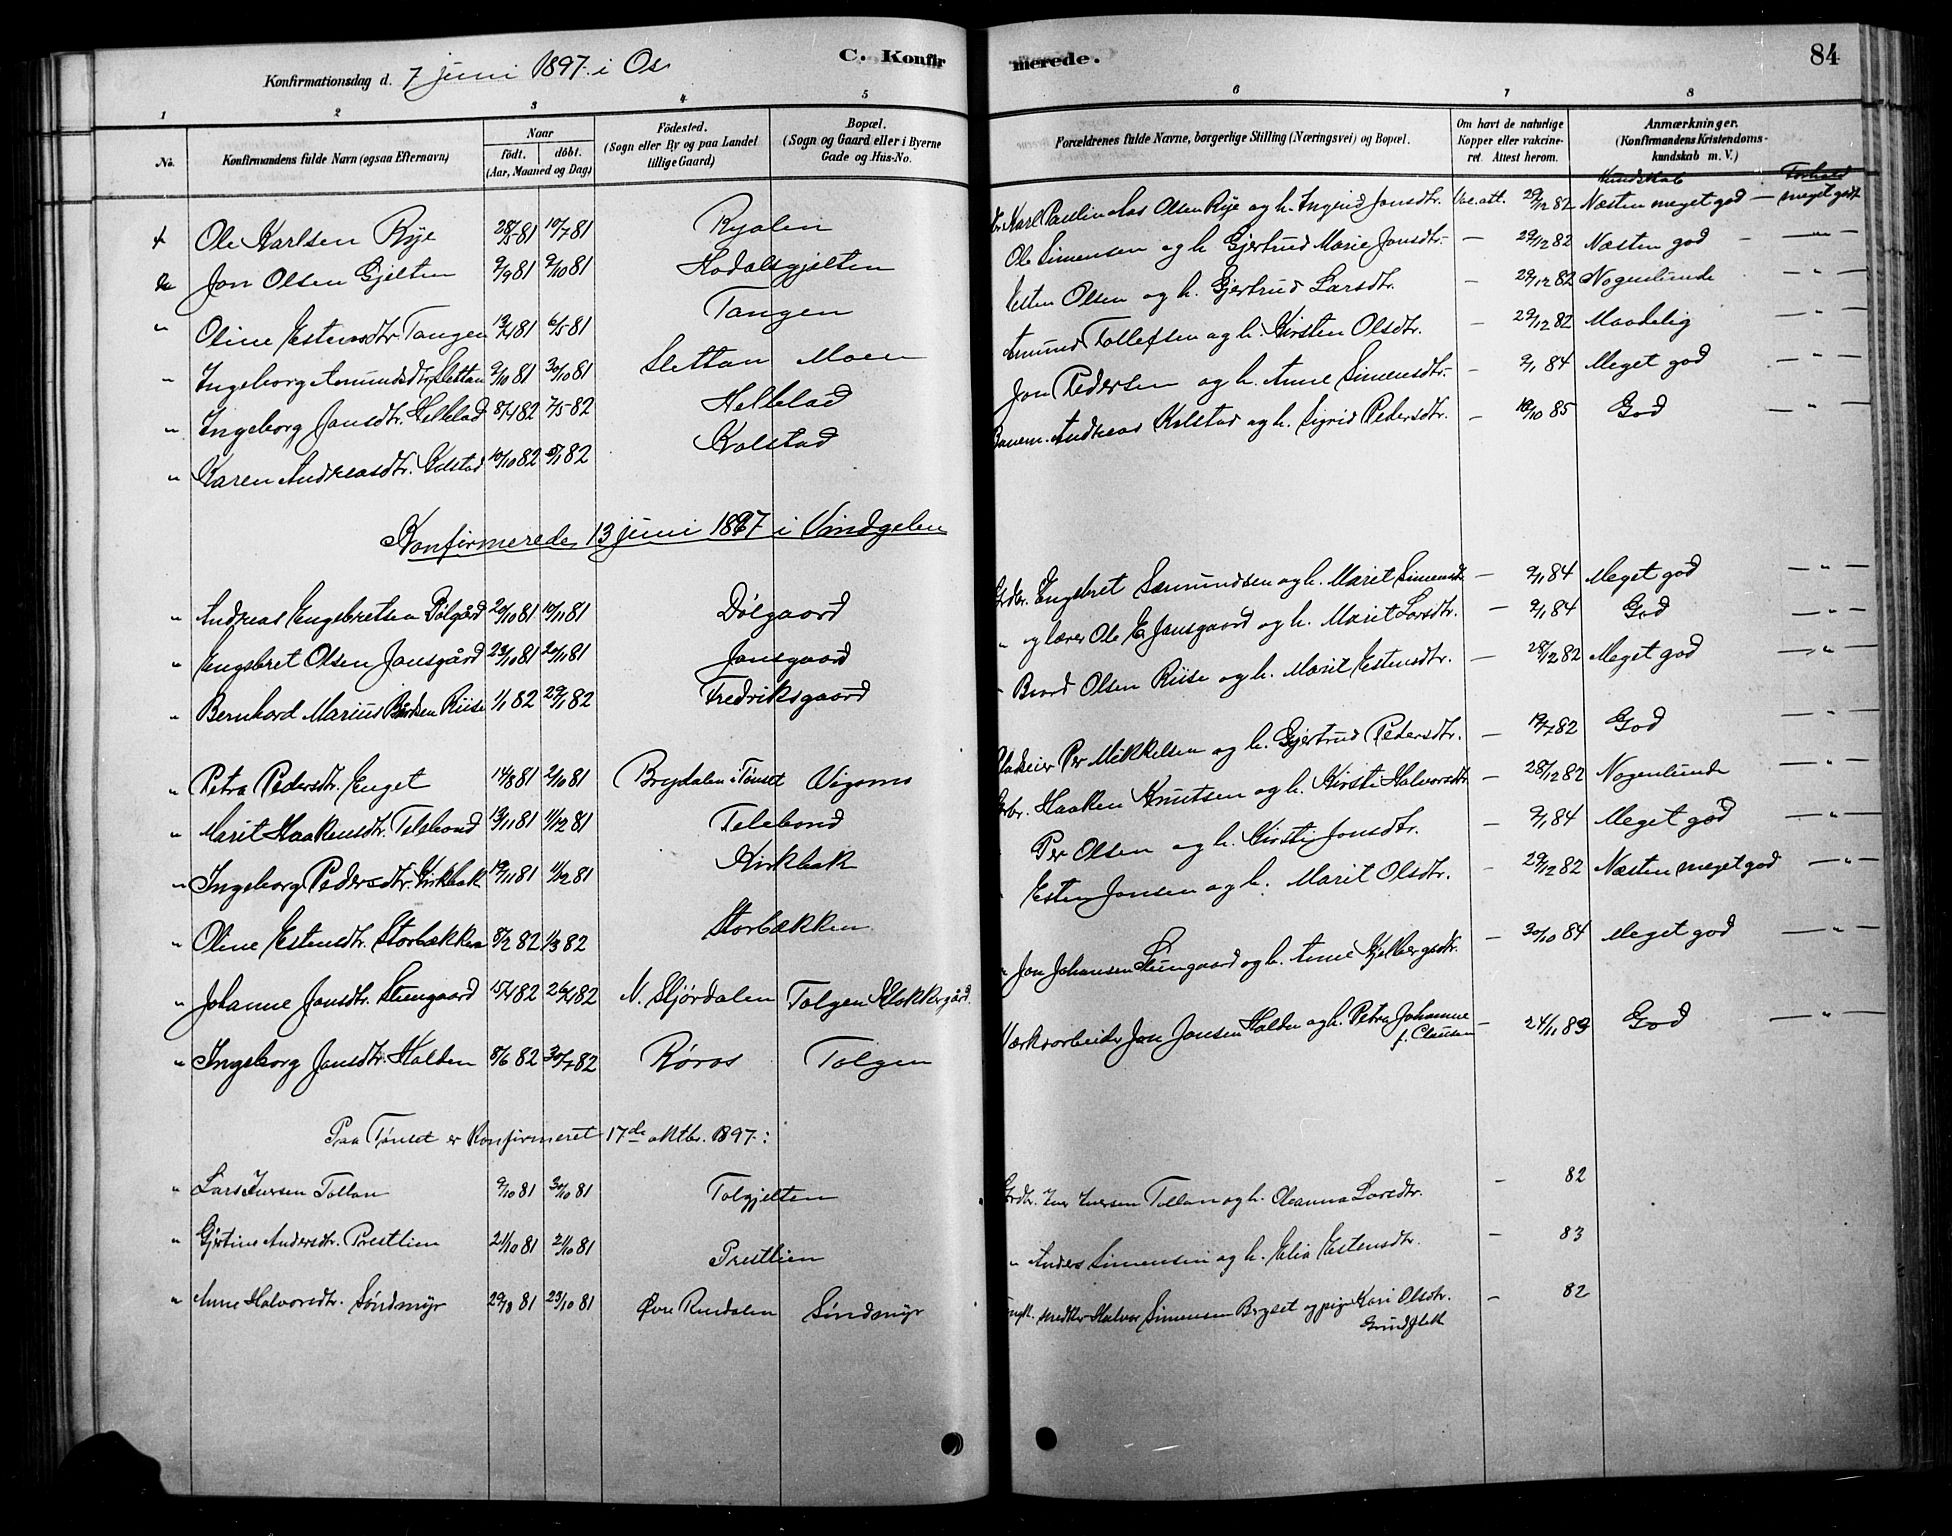 Konfirmationsdag d. 7 juni 1897. i Os
C. Konfirmerede.
84
1 2 3 4 5 6 7 8
No. Konfirmandens fulde Navn (ogsaa Efternavn) Naar födt. döbt. (Aar, Maaned og Dag) Födested. (Sogn eller By og paa Landet tillige Gaard) Bopæl. (Sogn og Gaard eller i Byerne Gade og Hus-No. Forældrenes fulde Navne, borgerlige Stilling (Næringsvei) og Bopæl. Om havt de naturlige Kopper eller vakcineret. Attest herom. Anmærkninger. (Konfirmandens Kristendomskundskab m. V.)
Kundskab Forhold
Ole Karlsen Rye 28/5 81 10/7 81 Ryalen Karl Paulinus Olsen Rye og h. Ingrid Jonsdtr. Vac. att. 29/12 82 Næsten meget god — meget godt
Jon Olsen Gjelten 2/9 81 9/10 81 Hodalsgjelten Ole Simensen og h. Gjertrud Marie Jonsdtr. — 29/12 82 Næsten god — " —
" Oline Estensdtr. Tangen 13/4 81 6/5 81 Tangen Esten Olsen og h. Gjertrud Larsdtr. — 29/12 82 Nogenlunde — " —
" Ingeborg Amundsdtr. Slettan 9/10 81 30/10 81 Slettan Moen Amund Tollefsen og h. Kirsten Olsdtr. — 29/12 82 Maadelig — " —
" Ingeborg Jonsdtr. Hellelad 8/4 82 7/5 82 Hellelad Jon Pedersen og h. Anne Simensdtr. — 9/1 84 Meget god — " —
" Karen Andreasdtr. Kolstad 10/10 82 5/11 82 Kolstad Banem. Andreas Kolstad og h. Sigrid Pedersdtr. — 18/10 85 God — " —
Konfirmerede 13 juni 1897 i Vindgelen
" Andreas Engebretsen Dølgård 20/10 81 10/11 81 Dølgaard Grdbr. Engebret Sæmundsen og h. Marit Simensdt. — 9/1 84 Meget god — " —
" Engebret Olsen Jonsgård 23/10 81 20/11 81 Jonsgaard " og lærer Ole E. Jonsgaard og h. Marit Larsdtr. — 9/1 84 God — " —
" Bernhard Marius Bårdsen Riise 1/1 82 29/1 82 Fredriksgaard Baard Olsen Riise og h. Marit Estensdtr. — 28/12 82 Meget god — " —
" Petra Pedersdtr. Enget 14/8 81 2/10 81 Brydalen i Tønset Vigoms Per Mikkelsen og h. Gjertrud Pedersdtr. — 19/7 82 God — " —
" Marit Haakensdtr. Telebond 13/11 81 11/12 81 Telebond Haaken Knutsen og h. Kirsti Halvorsdtr. — 28/12 82 Nogenlunde — " —
" Ingeborg Pedersdtr. Kirkbak 19/11 81 11/12 81 Kirkbak Per Olsen og h. Kirsti Jonsdtr. — 9/1 84 Meget god — " —
" Oline Estensdtr. Storbækken 8/2 82 1/3 82 Storbækken Esten Jonsen og h. Marit Olsdtr. — 29/12 82 Næsten meget god — " —
" Johanne Jonsdtr. Stuengaard 15/4 82 26/4 82 N. Stjørdalen Tolgen Klokkergård " Jon Johansen Stuengaard og h. Anne Kjelbergsdtr. — 30/10 84 Meget god — " —
" Ingeborg Jonsdtr. Holden 8/6 82 30/7 82 Røros Tolgen Værksarbeider Jon Jonsen Holden og h. Petra Johanne f. Clausen — 24/11 83 God — " —
Paa Tønset er Konfirmeret 17de oktbr. 1897:
" Lars Iversen Tollan 9/10 81 30/10 81 Tolgjelten Grdbr. Iver Iversen Tollan og h. Oleanna Larsdtr. — 82
" Gjertine Andersdtr. Prestlien 2/10 81 21/10 81 Prestlien " Anders Simensen og h. Elia Estensdtr. — 83
" Anne Halvorsdtr. Søndmyr 29/8 81 23/10 81 Øvre Rendalen Søndmyr Halvor Simensen Bryset og pige Kari Olsdtr. — 82